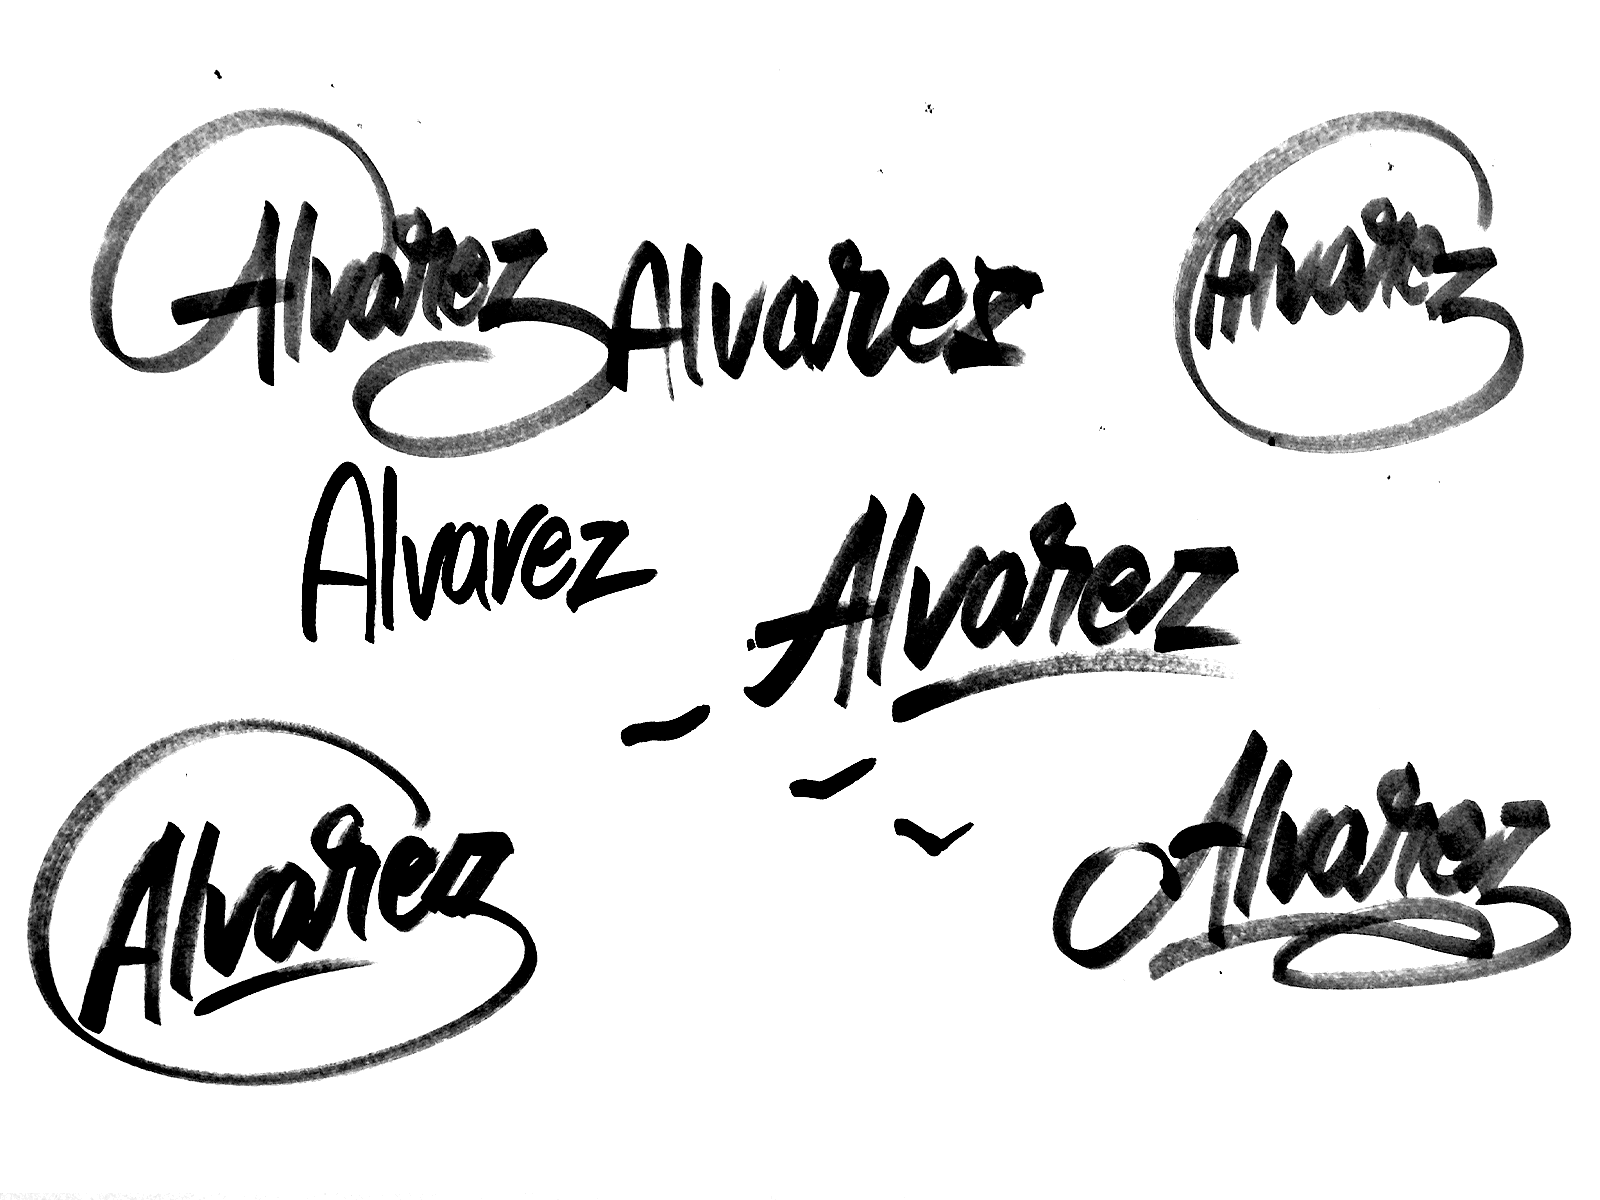 Alvarez Alvares Alvarez
Alvarez
Alvarez
Alvarez
Alvarez